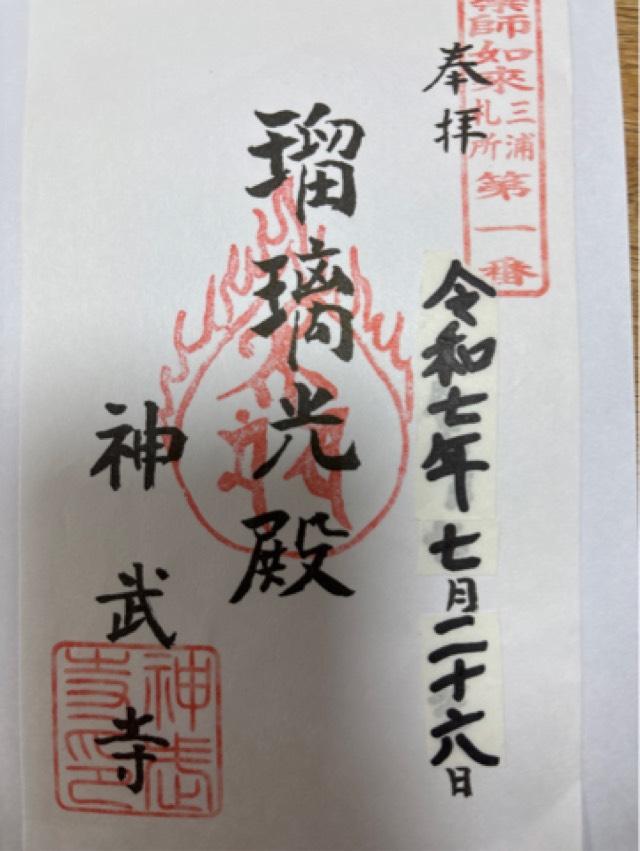 薬師如来
三浦
札所
第一番
奉拝
令和七年七月二十六日
瑠璃光殿
神武寺
神武
寺印